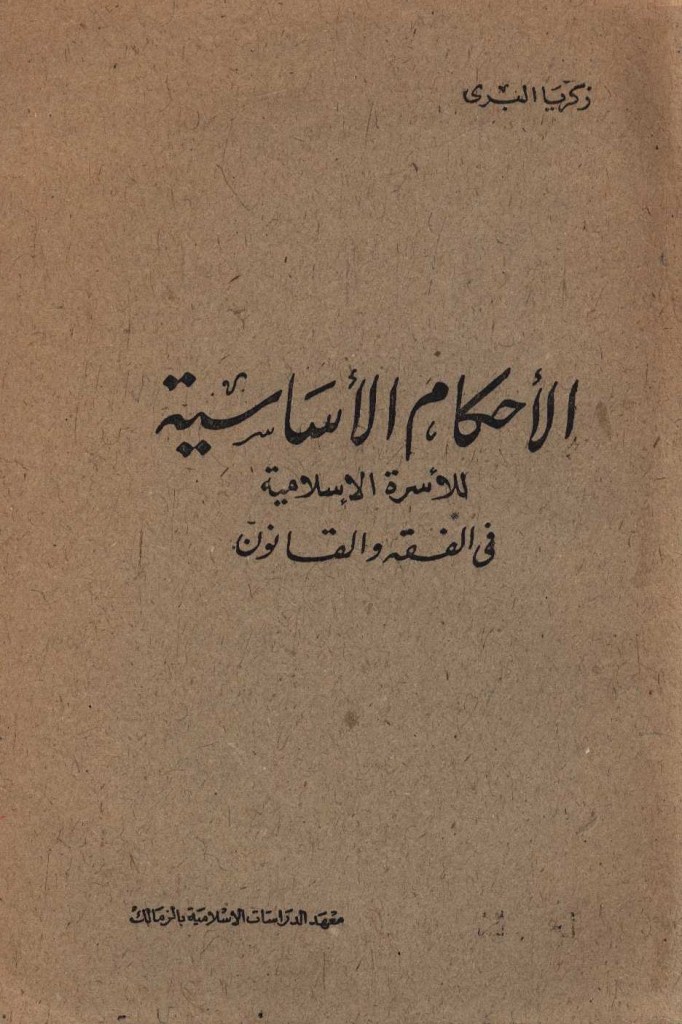 زكريا البرى
الأحكام الأساسية
للأسرة الإسلامية
فى الفقه والقانون
معهد الدراسات الاسلامية بالزمالك